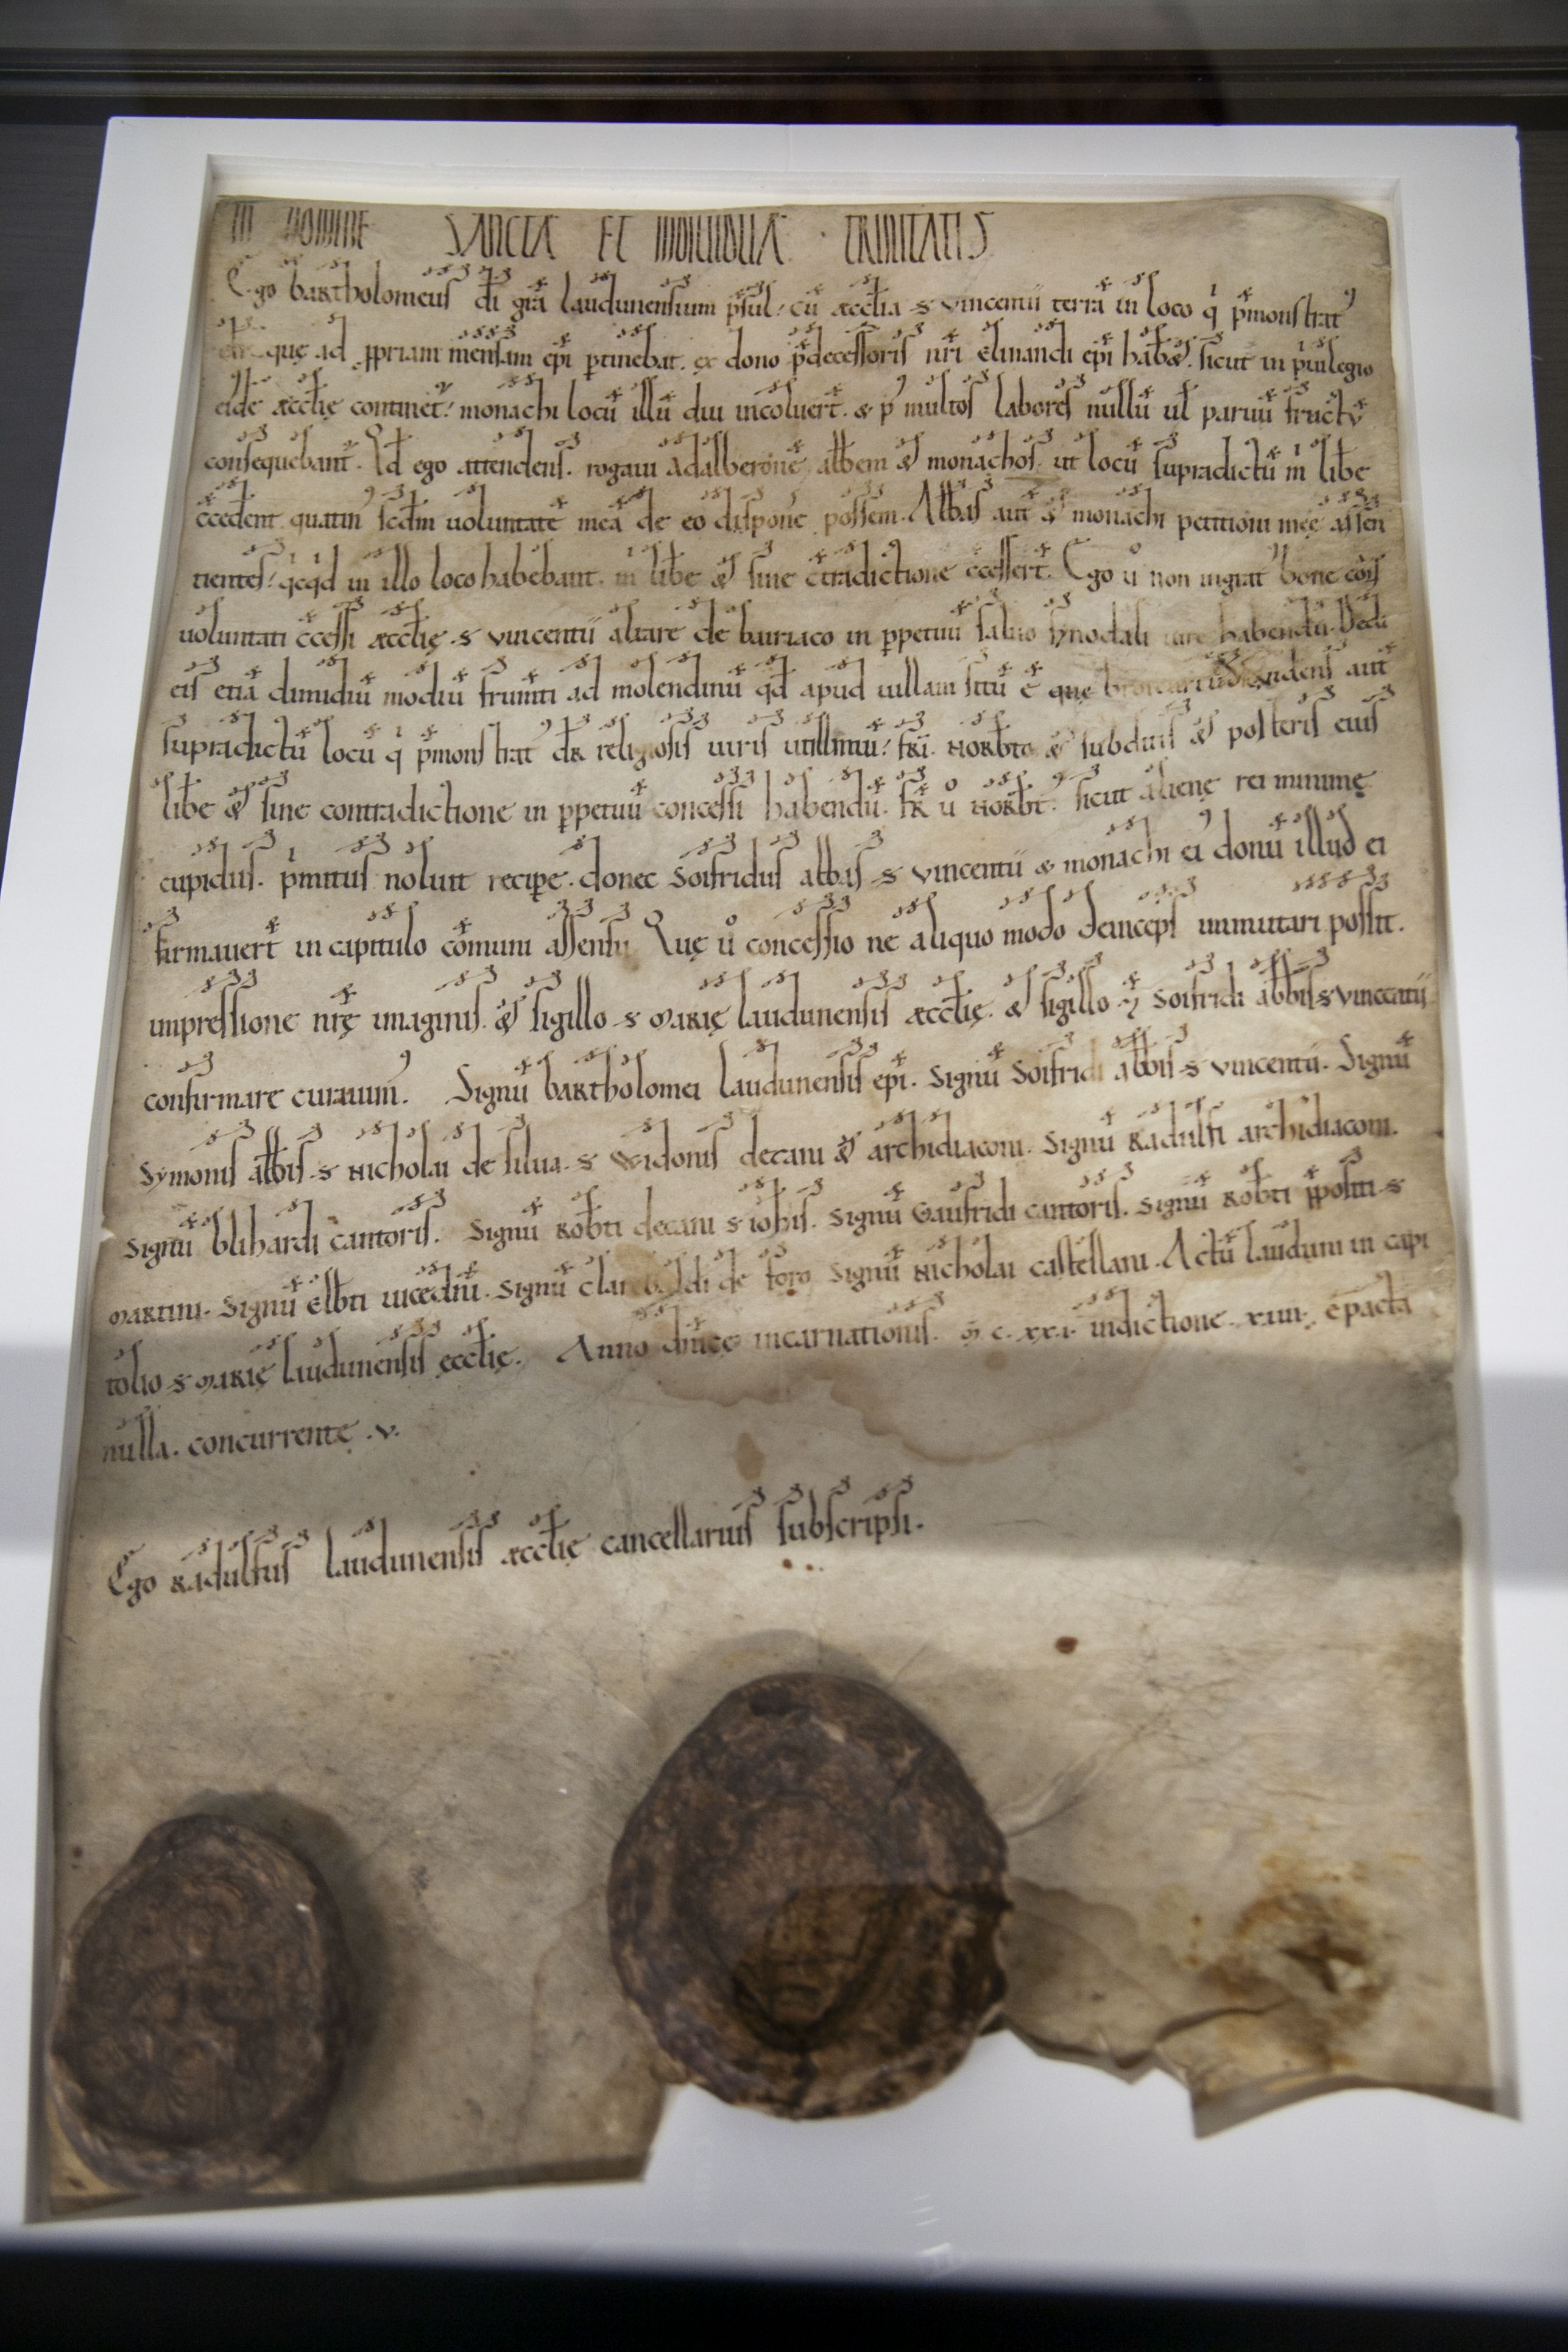 IN NOMINE SANCTÆ ET INDIVIDUÆ · TRINITATIS
Ego bartholomeus dī grā laudunensium p̄sul / cū æccłia · s · vincentii terrā in loco qͥ p̄monstratꝰ
quę ad ꝓpriam mensam ep̄i ꝑtinebat · ex dono p̄decessoris nr̄i elinandi ep̄i habet · sicut in pͥuilegio
eiꝰdē æccłię continet᷑ / monachi locū illū diu incoluer̄t · & pꝰ multos labores nullū uł paruū fructū
consequebant᷑ · Qd̄ ego attendens · rogaui adalberonē abbēm & monachos · ut locū supradictū mͥ libe
c̄cederent quatinꝰ scd̄m uoluntatē meā de eo disponere possem · Abbas aut̄ & monachi petitioni meę assen
tientes / qͥcqͥd in illo loco habebant · mͥ libe & sine c̄tradictione c̄cesser̄t · Ego uͦ non ingratꝰ bonę eoꝝ
uoluntati c̄cessi æccłię · s · vincentii altare de buiriaco in ꝑpetuū saluo synodali iure habendū · Dedi
eis etiā dimidiū modiū frum̄ti ad molendinū qd̄ apud uillam sitū ē quę aut̄
supradictū locū qͥ p̄monstratꝰ dr̄ religiosis uiris utillimū / fr̄i · Norb̄to & subditis & posteris eius
lib̄e & sine contradictione in ꝑpetuū concessi habendū · fr̄ uͦ Norb̄tꝰ / sicut alienę rei minimę
cupidus · pͥmitus noluit reciꝑe · donec Soifridus abbas · s · vincentii & monachi eiꝰ donū illud ei
firmauer̄t in capitulo cōmuni assensu · Quę uͦ concessio ne aliquo modo deinceps inmutari possit ·
inpressione nr̄ę imaginis · & sigillo · s · Marię laudunensis æccłię · & sigillo Soifridi abb̄is · s · vincentii
confirmare curauimꝰ · Signū bartholomei laudunensis ep̄i · Signū Soifridi abb̄is · s · vincentii · Signū
Symonis abb̄is · s · Nicholai de silua · S · Widonis decani & archidiaconi · Signū Radulfi archidiaconi ·
Signū blihardi cantoris · Signū Rob̄ti decani · s · ioh̄is · Signū Gaufridi cantoris · Signū Rob̄ti p̄positi · s ·
Martini · Signū elb̄ti uicedn̄i · Signū claremboldi de foro Signū Nicholai castellani · Actū lauduni in capi
tolio · s · Marię laudunensis ęccłię · Anno dn̄icę incarnationis · M · c · xxi · indictione · xiiii · epacta
nulla · concurrente · v ·
Ego Radulfus laudunensis æccłię cancellarius subscripsi ·